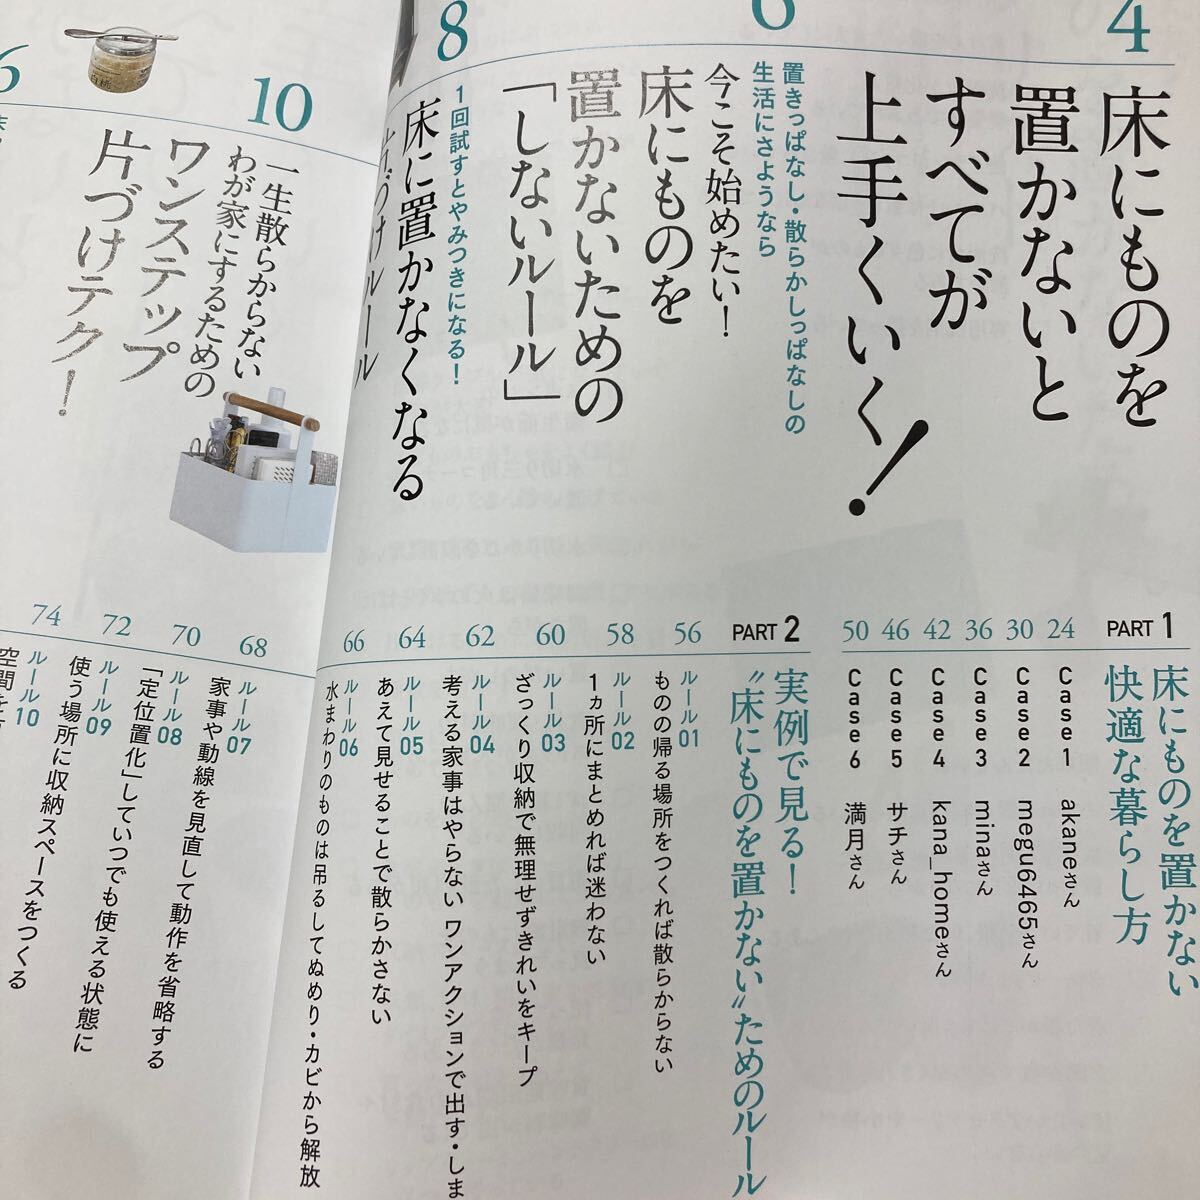 4
床にものを
置かないと
すべてが
上手くいく！
6
置きっぱなし・散らかしっぱなしの
生活にさようなら
今こそ始めたい！
床にものを
置かないための
「しないルール」
8
1回試すとやみつきになる！
床に置かなくなる
片づけルール
10
一生散らからない
わが家にするための
ワンステップ
片づけテク！
PART 1
床にものを置かない
快適な暮らし方
24 Case1 akaneさん
30 Case2 megu6465さん
36 Case3 minaさん
42 Case4 kana_homeさん
46 Case5 サチさん
50 Case6 満月さん
PART 2
実例で見る！
“床にものを置かない”ためのルール
56 ルール01
ものの帰る場所をつくれば散らからない
58 ルール02
1ヵ所にまとめれば迷わない
60 ルール03
ざっくり収納で無理せずきれいをキープ
62 ルール04
考える家事はやらない ワンアクションで出す・しま
64 ルール05
あえて見せることで散らかさない
66 ルール06
水まわりのものは吊るしてぬめり・カビから解放
68 ルール07
家事や動線を見直して動作を省略する
70 ルール08
「定位置化」していつでも使える状態に
72 ルール09
使う場所に収納スペースをつくる
74 ルール10
空間を